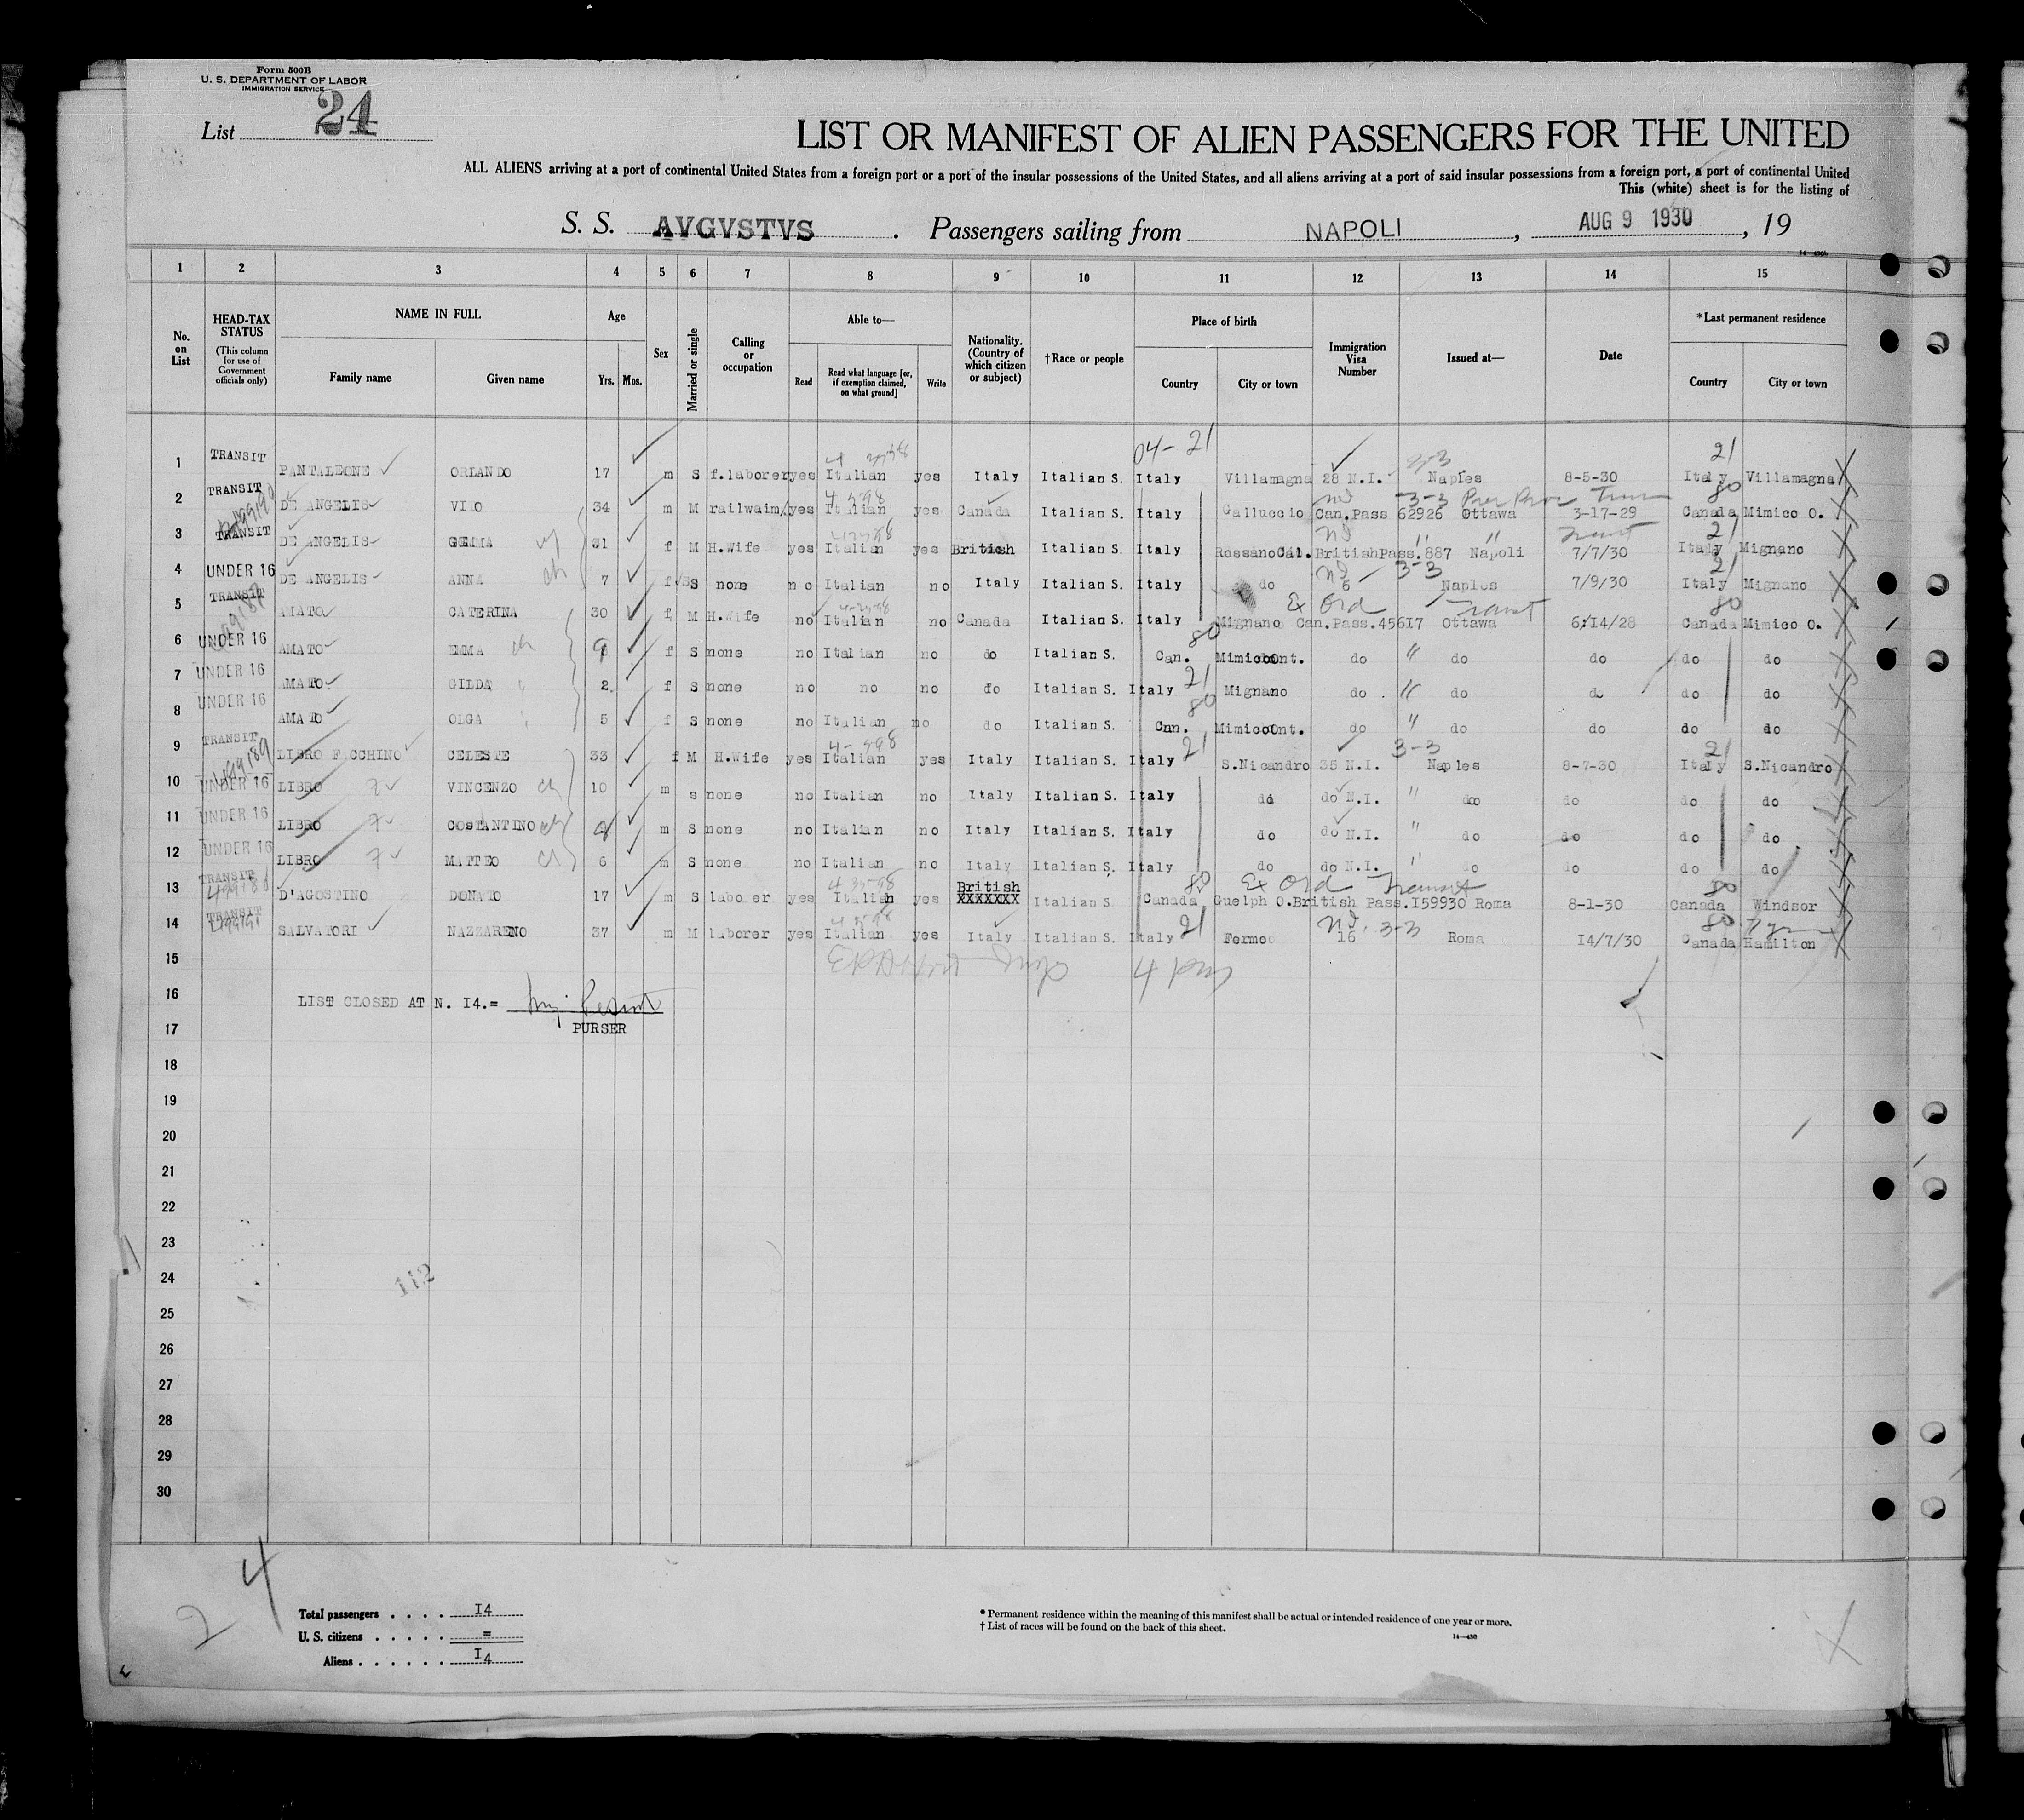 Form 500B
U. S. DEPARTMENT OF LABOR
IMMIGRATION SERVICE
List 24
LIST OR MANIFEST OF ALIEN PASSENGERS FOR THE UNITED
ALL ALIENS arriving at a port of continental United States from a foreign port or a port of the insular possessions of the United States, and all aliens arriving at a port of said insular possessions from a foreign port, a port of continental United
This (white) sheet is for the listing of
S. S. AVGVSTVS . Passengers sailing from NAPOLI , AUG 9 1930 , 19
1 2 3 4 5 6 7 8 9 10 11 12 13 14 15
No. on List
HEAD-TAX STATUS
(This column for use of Government officials only)
NAME IN FULL
Family name Given name
Age
Yrs. Mos.
Sex
Married or single
Calling or occupation
Able to—
Read Read what language [or, if exemption claimed, on what ground] Write
Nationality. (Country of which citizen or subject)
†Race or people
Place of birth
Country City or town
Immigration Visa Number
Issued at—
Date
*Last permanent residence
Country City or town
04-21 21
1 TRANSIT PANTALEONE ORLANDO 17 m S f.laborer yes Italian yes Italy Italian S. Italy Villamagna 28 N.I. Naples 8-5-30 Italy Villamagna
2 TRANSIT DE ANGELIS VITO 34 m M railwaim, yes Italian yes Canada Italian S. Italy Galluccio Can.Pass 62926 Ottawa 3-17-29 Canada Mimico O.
3 TRANSIT DE ANGELIS GEMMA 31 f M H.Wife yes Italian yes British Italian S. Italy Rossano Cal. British Pass. 887 Napoli 7/7/30 Italy Mignano
4 UNDER 16 DE ANGELIS ANNA ch 7 f S none no Italian no Italy Italian S. Italy do 6 3-3 Naples 7/9/30 Italy Mignano
5 TRANSIT AMATO CATERINA 30 f M H.Wife no Italian no Canada Italian S. Italy Mignano Can.Pass.45617 Ottawa 6/14/28 Canada Mimico O.
Ex Ord Transit
6 UNDER 16 AMATO EMMA ch 9 f S none no Italian no do Italian S. Can. Mimico Ont. do " do do do do
7 UNDER 16 AMATO GILDA 2 f S none no no no do Italian S. Italy Mignano do " do do do do
8 UNDER 16 AMATO OLGA 5 f S none no Italian no do Italian S. Can. Mimico Ont. do " do do do do
9 TRANSIT LIBRO FACCHINO CELESTE 33 f M H.Wife yes Italian yes Italy Italian S. Italy S.Nicandro 35 N.I. Naples 8-7-30 Italy S.Nicandro
10 UNDER 16 LIBRO VINCENZO ch 10 m s none no Italian no Italy Italian S. Italy do do N.I. " do do do do
11 UNDER 16 LIBRO COSTANTINO ch m S none no Italian no Italy Italian S. Italy do do N.I. " do do do do
12 UNDER 16 LIBRO MATTEO ch 6 m S none no Italian no Italy Italian S. Italy do do N.I. " do do do do
13 TRANSIT D'AGOSTINO DONATO 17 m S laborer yes Italian yes British XXXXXXX Italian S Canada Guelph O. British Pass.159930 Roma 8-1-30 Canada Windsor
80 Ex Ord Transit 80
14 TRANSIT SALVATORI NAZZARENO 37 m M laborer yes Italian yes Italy Italian S. Italy Fermo 16 3-3 Roma 14/7/30 Canada Hamilton
15
16 LIST CLOSED AT N. I4.=
PURSER
17
18
19
20
21
22
23
24
112
25
26
27
28
29
30
2 4
Total passengers . . . . I4
U. S. citizens . . . . . =
Aliens . . . . . . I4
* Permanent residence within the meaning of this manifest shall be actual or intended residence of one year or more.
† List of races will be found on the back of this sheet.
14—430